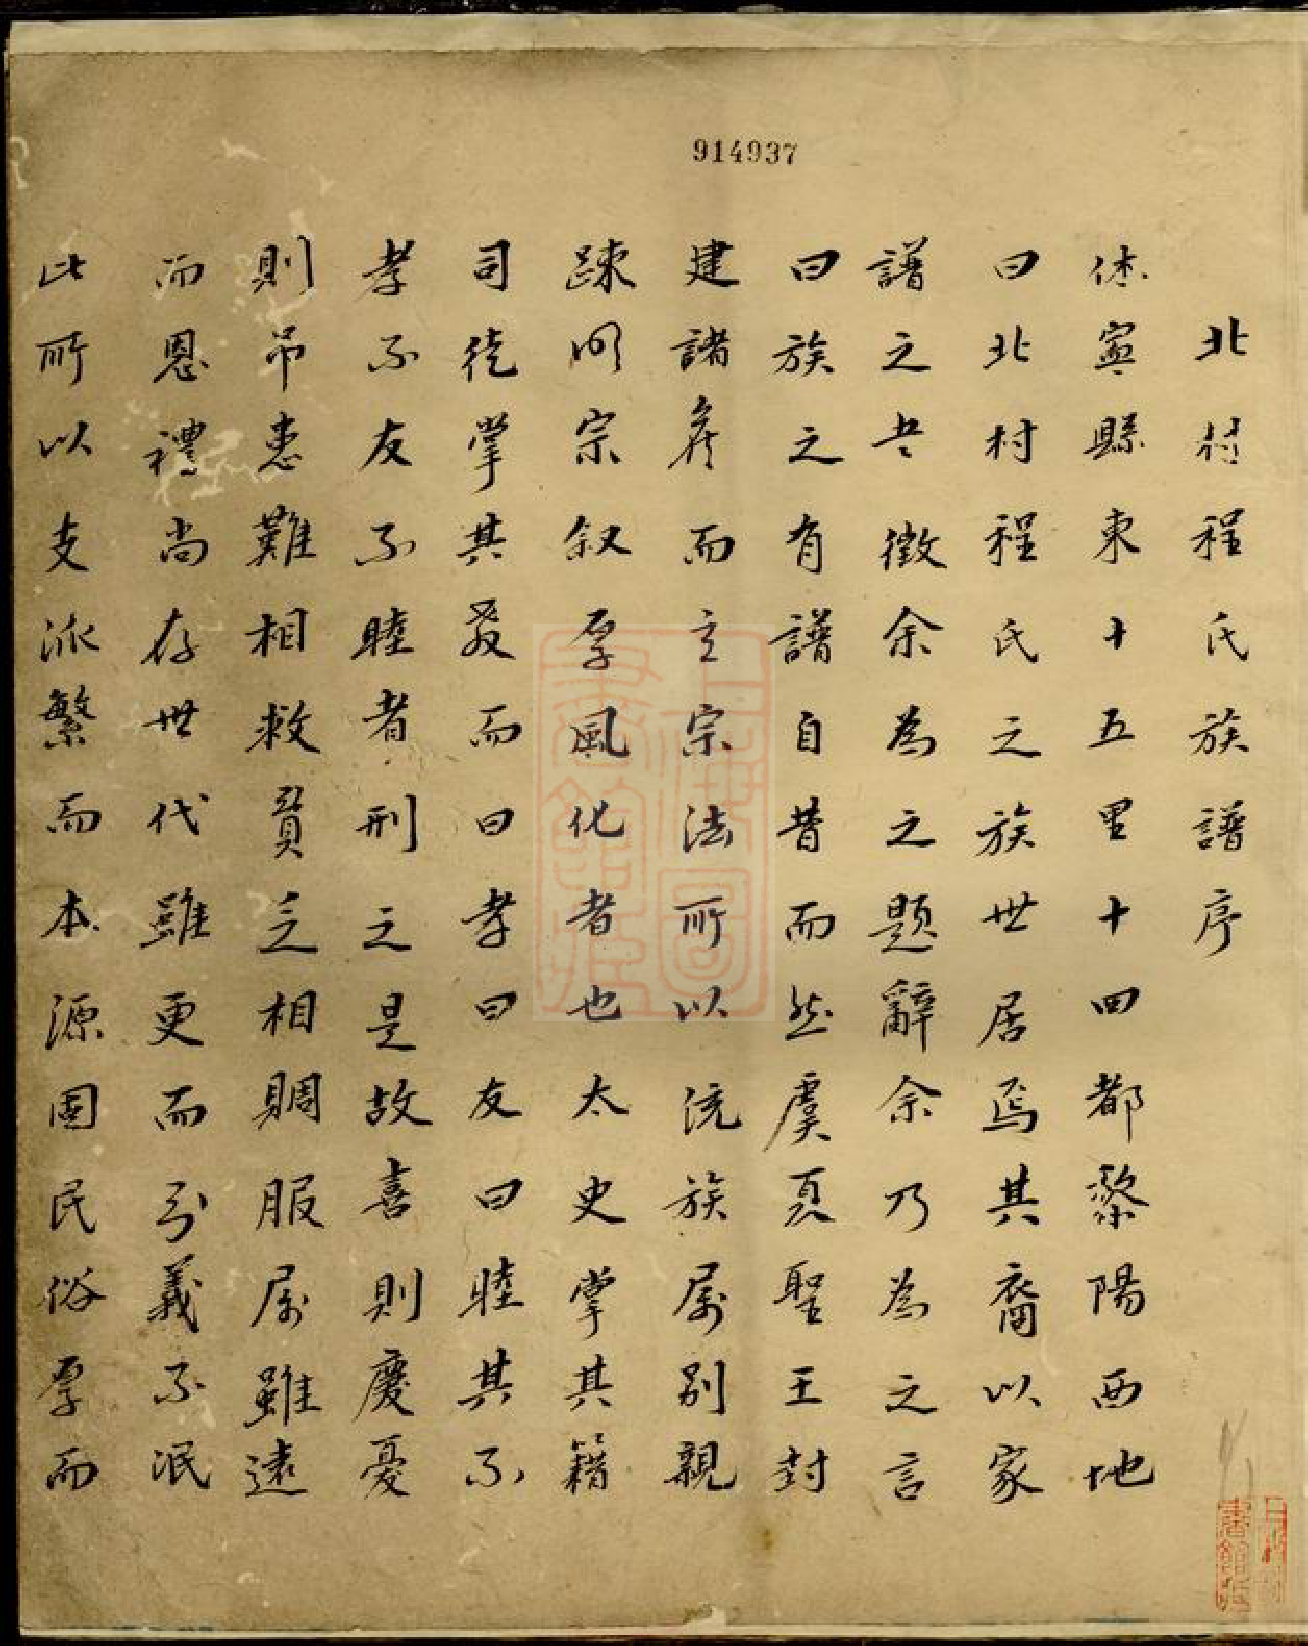 914937
北村程氏族譜序
休寧縣東十五里十四都黎陽西地
曰北村程氏之族世居焉其裔以家
譜之书徵余為之題辭余乃為之言
曰族之有譜自昔而然虞夏聖王封
建諸矦而立宗法所以沅族属别親
踈明宗叙厚風化者也太史掌其籍
司徒掌其教而曰孝曰友曰睦其不
孝不友不睦者刑之是故喜則慶憂
則吊患難相救貧乏相賙服属雖遠
而恩禮尚存世代雖更而分義不泯
此所以支派繁而本源固民俗厚而
上海圖書館藏
上海圖書館藏